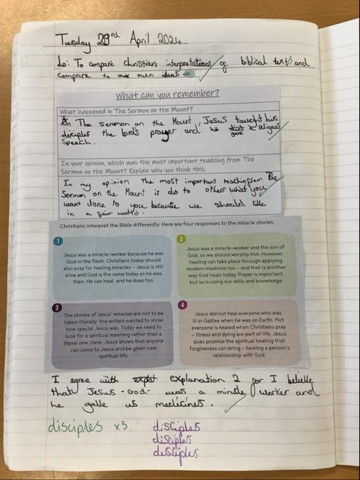 Tuesday 23rd April 2024
Lo: To compare christian interpretations of biblical texts and
compare to my own ideas
What can you remember?
What happened in The Sermon on the Mount?
In The Sermon on the Mount, Jesus taught his
disciples the lord's prayer and he gave a religous
speech.
In your opinion, which was the most important teaching from The
Sermon on the Mount? Explain why you think this.
In my opinion the most important teaching from the
Sermon on the Mount is do to others what you
want done to you because we should live
in a fair world.
Christians interpret the Bible differently. Here are four responses to the miracle stories.
1
Jesus was a miracle-worker because he was
God in the flesh. Christians today should
also pray for healing miracles – Jesus is still
alive and God is the same today as he was
then. He can heal, and he does too.
2
Jesus was a miracle-worker and the son of
God, so we should worship him. However,
healing can take place through applying
modern medicine too – and that is another
way God heals today. Prayer is important,
but so is using our skills and knowledge.
3
The stories of Jesus' miracles are not to be
taken literally: the writers wanted to show
how special Jesus was. Today we need to
look for a spiritual meaning rather than a
literal one. Here, Jesus shows that anyone
can come to Jesus and be given new
spiritual life.
4
Jesus did not heal everyone who was
ill in Galilee when he was on Earth. Not
everyone is healed when Christians pray
– illness and dying are part of life. Jesus
does promise the spiritual healing that
forgiveness can bring – healing a person's
relationship with God.
I agree with explanation 2 for I believe
that Jesus -God- was a miracle worker and
he gave us medicines.
disciples x3
disciples
disciples
disciples